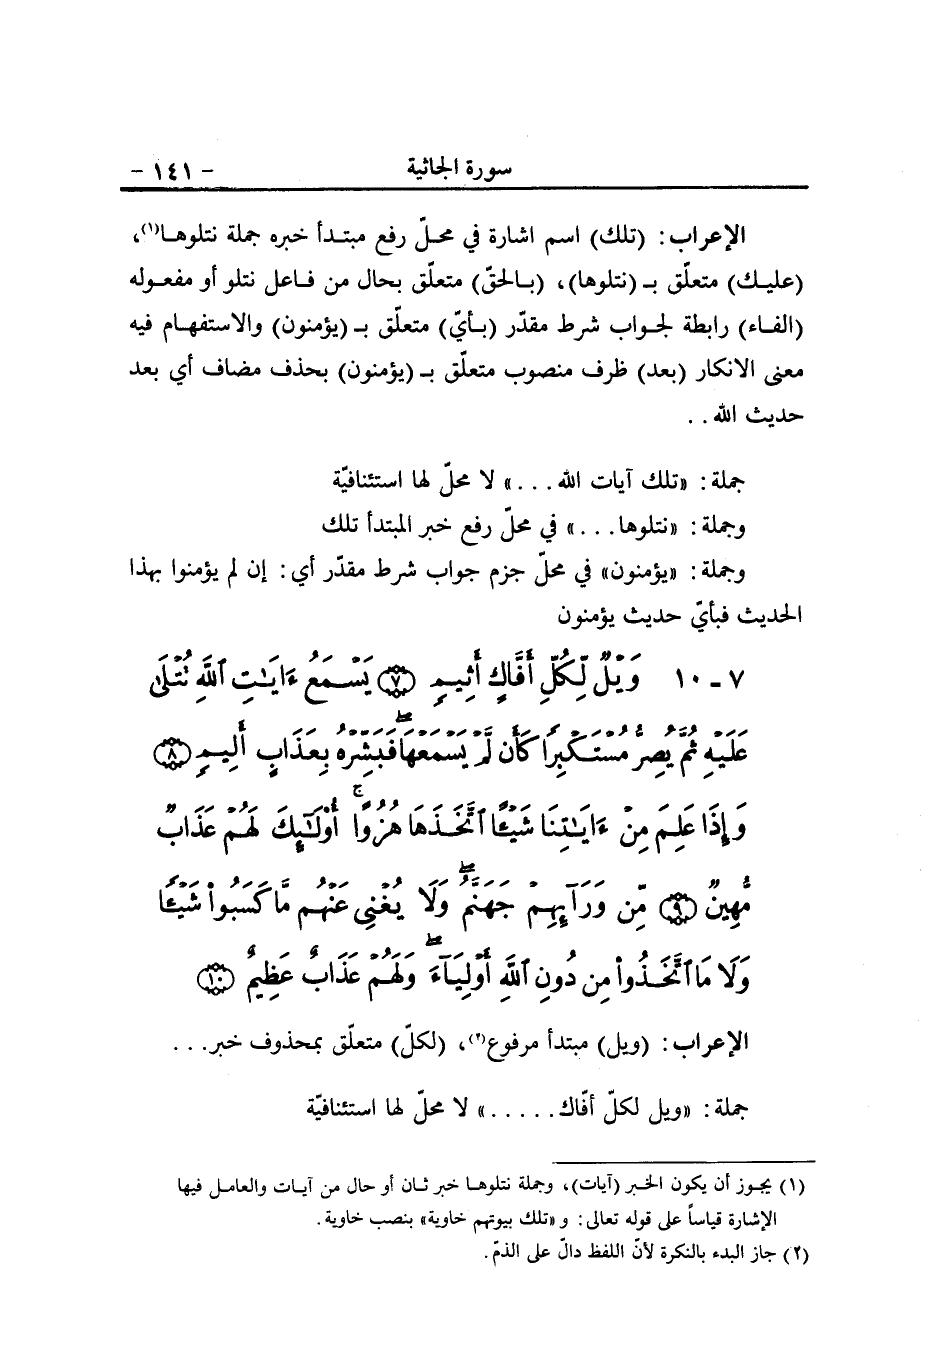 سورة الجاثية - ١٤١ -
الإعراب: (تلك) اسم اشارة في محلّ رفع مبتدأ خبره جملة نتلوها(١)،
(عليك) متعلّق بـ (نتلوها)، (بالحقّ) متعلّق بحال من فاعل نتلو أو مفعوله
(الفاء) رابطة لجواب شرط مقدّر (بأيّ) متعلّق بـ (يؤمنون) والاستفهام فيه
معنى الانكار (بعد) ظرف منصوب متعلّق بـ (يؤمنون) بحذف مضاف أي بعد
حديث الله . .
جملة: «تلك آيات الله . . .» لا محلّ لها استئنافيّة
وجملة: «نتلوها. . .» في محلّ رفع خبر المبتدأ تلك
وجملة: «يؤمنون» في محلّ جزم جواب شرط مقدّر أي: إن لم يؤمنوا بهذا
الحديث فبأيّ حديث يؤمنون
٧ - ١٠ وَيْلٌ لِّكُلِّ أَفَّاكٍ أَثِيمٍ ٧ يَسْمَعُ ءَايَٰتِ ٱللَّهِ تُتْلَىٰ
عَلَيْهِ ثُمَّ يُصِرُّ مُسْتَكْبِرًا كَأَن لَّمْ يَسْمَعْهَا ۖ فَبَشِّرْهُ بِعَذَابٍ أَلِيمٍ ٨
وَإِذَا عَلِمَ مِنْ ءَايَٰتِنَا شَيْـًٔا ٱتَّخَذَهَا هُزُوًا ۚ أُو۟لَٰٓئِكَ لَهُمْ عَذَابٌ
مُّهِينٌ ٩ مِّن وَرَآئِهِمْ جَهَنَّمُ ۖ وَلَا يُغْنِى عَنْهُم مَّا كَسَبُوا۟ شَيْـًٔا
وَلَا مَا ٱتَّخَذُوا۟ مِن دُونِ ٱللَّهِ أَوْلِيَآءَ ۖ وَلَهُمْ عَذَابٌ عَظِيمٌ ١٠
الإعراب: (ويل) مبتدأ مرفوع(٢)، (لكلّ) متعلّق بمحذوف خبر. . .
جملة: «ويل لكلّ أفّاك. . . . .» لا محلّ لها استئنافيّة
(١) يجوز أن يكون الخبر (آيات)، وجملة نتلوها خبر ثان أو حال من آيات والعامل فيها
الإشارة قياساً على قوله تعالى: و «تلك بيوتهم خاوية» بنصب خاوية.
(٢) جاز البدء بالنكرة لأنّ اللفظ دالّ على الذمّ.